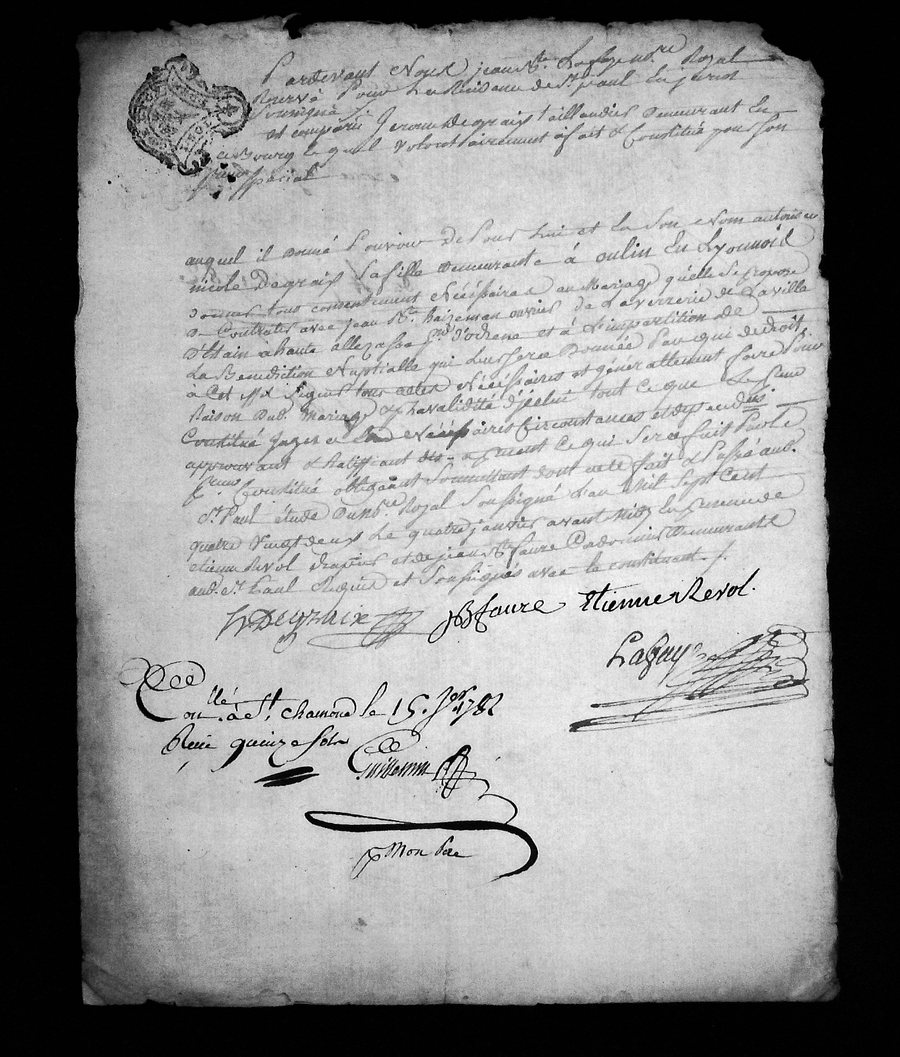 Pardevant Nous jean Bte Lafay nore Royal
Reservé Pour La Residence de St paul En jarest
soussigné
est comparû Jerome Degraix taillandier Demeurant En
ce Bourg Lequel volontairement a fait & Constitué pour son
speciale
auquel il donne Pouvoir De Pour Lui et En Son Nom autoriser
nicole Degraix Sa fille Demeurante à oulin En Lyonnois
Donner tous consentement Nécéssaires au Mariage qu'elle Se propose
De Contracter avec jean Bte Raizeman ouvrier De La verrerie de La ville
D'
La Bénédiction Nuptialle qui Luy Sera Donnée Par qui de droit
à Cet effet signer tous actes Nécéssaires et généralement faire Pour
Raison Dud. Mariage & La validité d'jcelui tout Ce que Le
Constitué jugera Nécéssaires Circonstances et dépendances
approuvant & Ratiffiant Ce qui Sera fait Par le
Constitué obligeant Soumettant dont acte fait & Passé aud.
St Paul étude Dud. nore Royal Soussigné L'an Mil Sept Cent
quatre vingt deux Le quatre janvier avant Midy En Presence de
etienne Revol et de jean Bte faure Cadonnier Demeurants
aud. St Paul Requis et Soussignés avec le constituant ./.
Degraix JB faure Etienne Revol.
Lafay
Con.llé à St. chamond le 15. Jer 1782
Reçu quinze sols
Guillemin
p Mon Pere